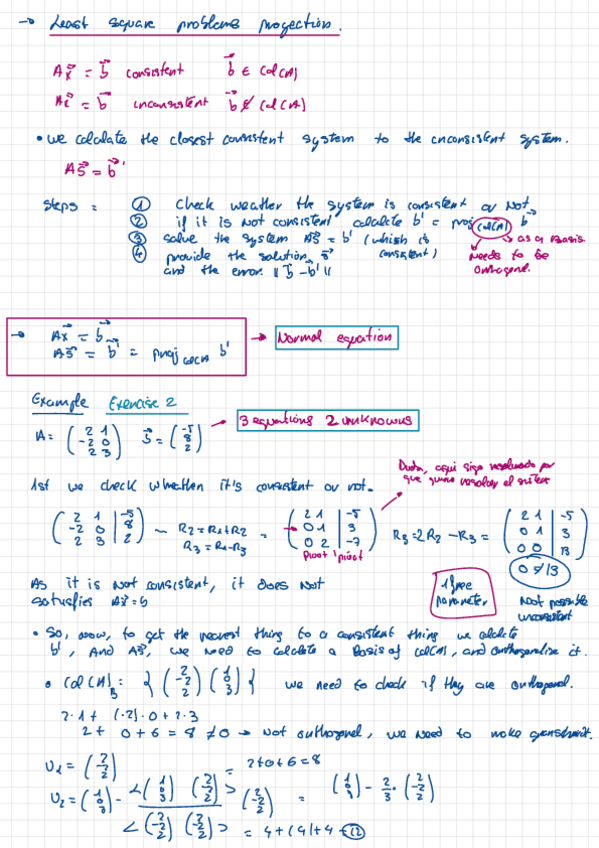 → Least square problems projection.
Ax⃗ = b⃗ consistent b⃗ ∈ Col(A)
Ax⃗ = b⃗ inconsistent b⃗ ∉ Col(A)
• we calculate the closest consistent system to the inconsistent system.
As⃗ = b⃗'
Steps =
① Check weather the system is consistent or not
② if it is not consistent calculate b' = proj Col(A) b⃗
③ solve the system As⃗ = b' (which is consistent)
④ provide the solution, s⃗
and the error ‖b⃗ - b'‖
→ as a Basis.
Needs to be
orthogonal.
→ Ax⃗ = b⃗
As⃗ = b⃗' = proj Col(A) b'
→ Normal equation
Example Exercise 2
A = ( 2 1 / -2 0 / 2 3 ) b⃗ = ( -5 / 8 / 2 ) → 3 equations 2 unknowns
1st we check whether it's consistent or not.
Duda, aqui sigo resolviendo por
que quiero resolver el sistema
( 2 1 | -5 / -2 0 | 8 / 2 3 | 2 ) ~ R2 = R1+R2
R3 = R1-R3 = ( 2 1 | -5 / 0 1 | 3 / 0 2 | -7 ) R3 = 2R2 - R3 = ( 2 1 | -5 / 0 1 | 3 / 0 0 | 13 )
Pivot pivot
0 ≠ 13
Not possible
inconsistent
1 free
parameter
As it is not consistent, it does not
satisfies Ax⃗ = b
• So, now, to get the nearest thing to a consistent thing we calculate
b', And As⃗, we need to calculate a Basis of Col(A), and orthogonalise it.
• Col(A)B : { ( 2 / -2 / 2 ) ( 1 / 0 / 3 ) } we need to check if they are orthogonal.
2·1 + (-2)·0 + 2·3
2 + 0 + 6 = 8 ≠ 0 → Not orthogonal, we need to make gramshmit.
U1 = ( 2 / -2 / 2 )
U2 = ( 1 / 0 / 3 ) - < ( 1 / 0 / 3 ) ( 2 / -2 / 2 ) > = 2+0+6 = 8
( 2 / -2 / 2 ) = ( 1 / 0 / 3 ) - 2/3 · ( 2 / -2 / 2 )
< ( 2 / -2 / 2 ) ( 2 / -2 / 2 ) > = 4+(4)+4 = 12